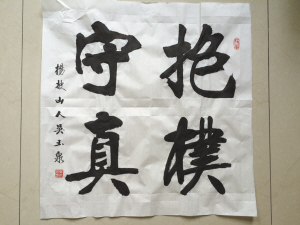 抱樸
守真
楊敖山人吳玉泉